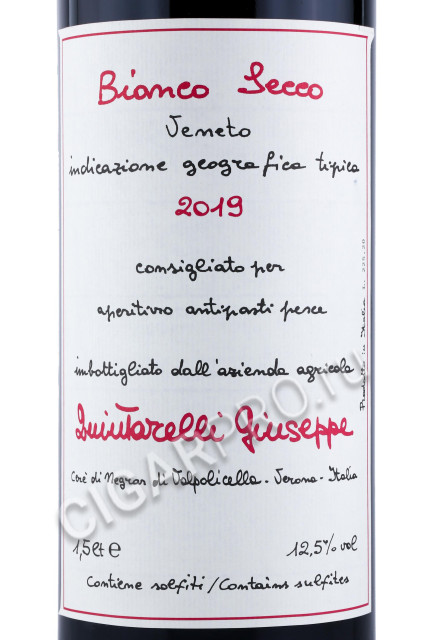 Bianco Secco
Veneto
indicazione geografica tipica
2019
consigliato per
aperitivo antipasti pesce
imbottigliato dall'azienda agricola
Quintarelli Giuseppe
Cerè di Negrar di Valpolicella - Verona - Italia
1,5 lt e
12,5% vol
Contiene solfiti / Contains sulfites
Prodotto in Italia L. 229.20
CIGARPRO.ru